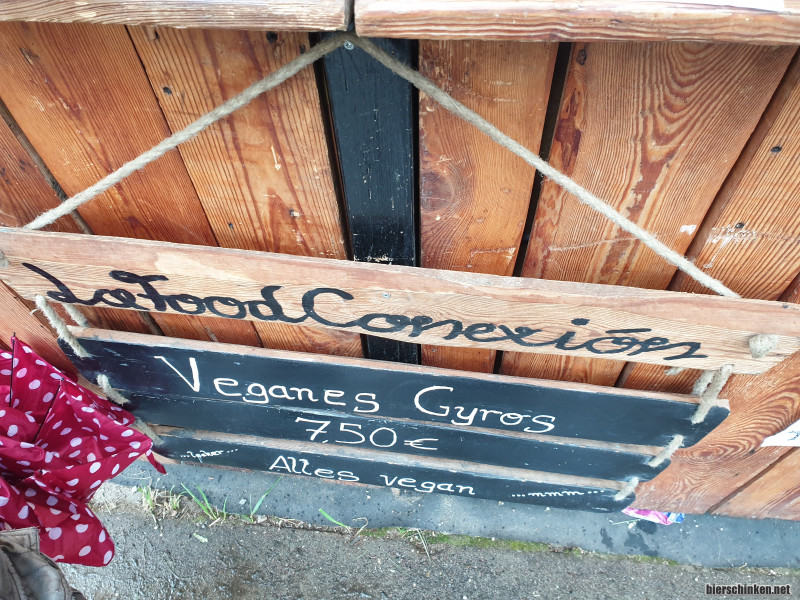 La food Conexión
Veganes Gyros
7,50€
...lecker...
Alles vegan
...mmm...
bierschinken.net